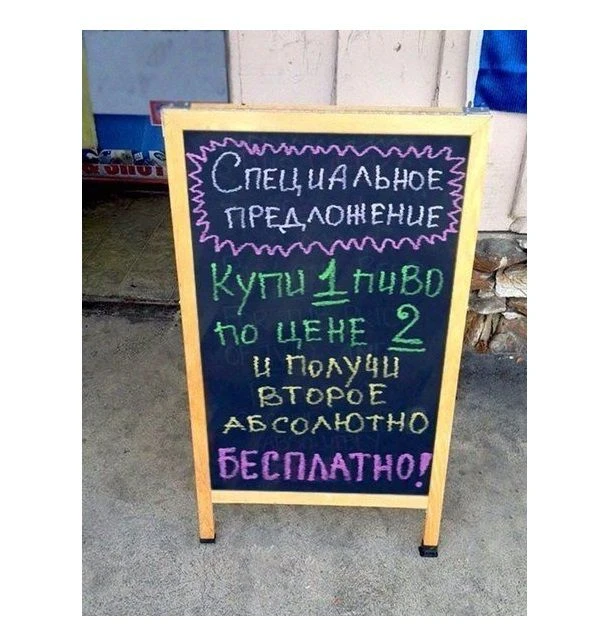 СПЕЦИАЛЬНОЕ
ПРЕДЛОЖЕНИЕ
КУПИ 1 ПИВО
ПО ЦЕНЕ 2
И ПОЛУЧИ
ВТОРОЕ
АБСОЛЮТНО
БЕСПЛАТНО!